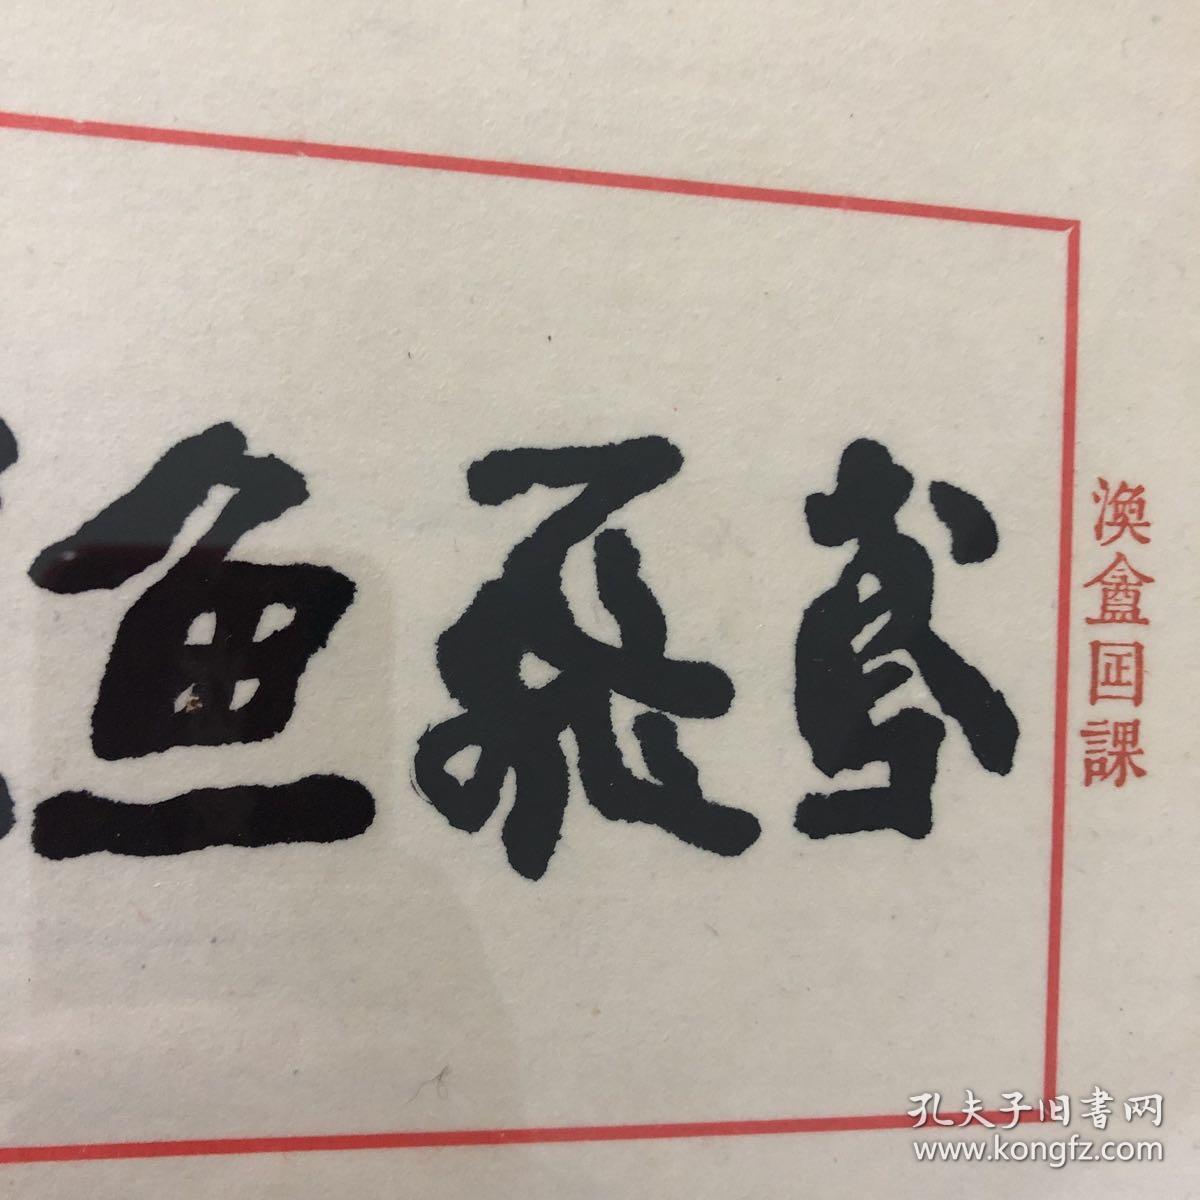 鳶飛魚
渙盦囸課
孔夫子旧書网
www.kongfz.com